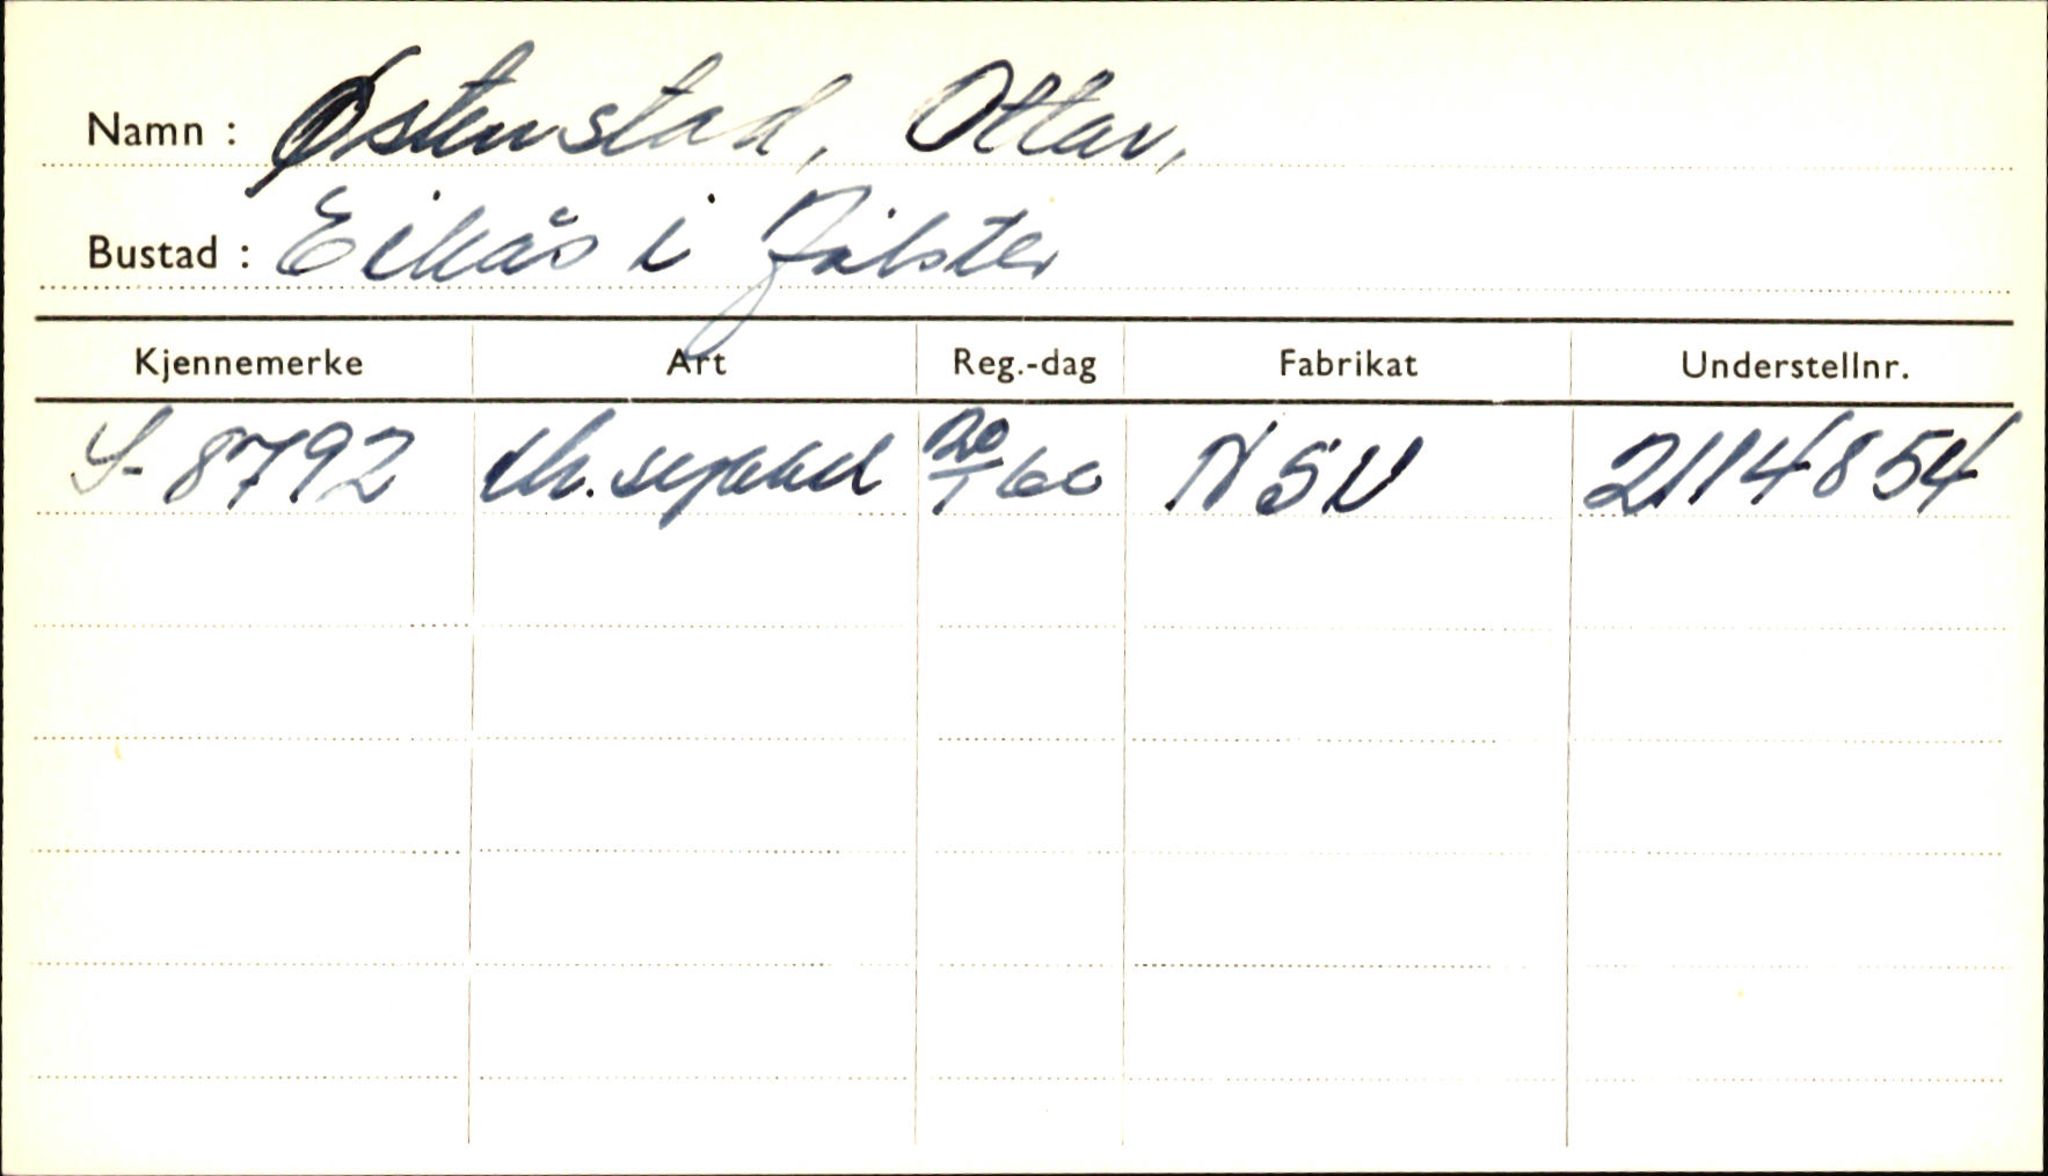 Namn : Østenstad, Ottar,
Bustad : Eikås i Jølster
Kjennemerke Art Reg.-dag Fabrikat Understellnr.
S-8792 20/1 60 NSU 2114854